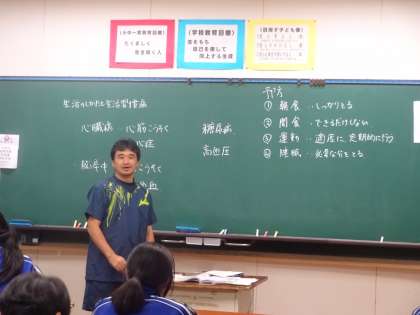 〈小中一貫教育目標〉
たくましく
生き抜く人
〈学校教育目標〉
志をもち
自己を律して
向上する生徒
〈目指す子ども像〉
生活のしかたと生活習慣病
心臓病 心筋こうそく
心症
脳卒中 こうそく
出血
糖尿病
高血圧
予防
① 朝食…しっかりとる
② 間食…できるだけしない
③ 運動…適度に、定期的に行う
④ 睡眠…必要な分をとる